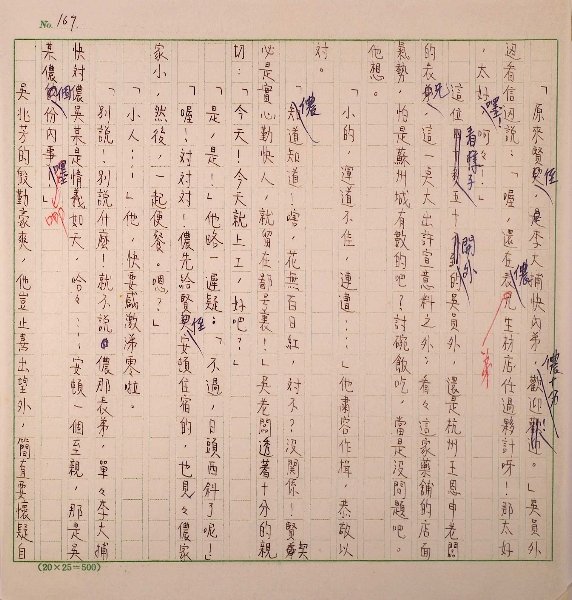 No. 167
「原來賢侄，是李大埔快內弟，歡迎歡迎。」吳員外
迎看信迎說：「喔，還在表兄生材店住過夥計呀！那太好
，太好，啊々！」
這位看樣子五十開外的吳員外，還是杭州王恩申老闆
的表兄，這一吳大出許宣意料之外；看々這家藥舖的店面
氣勢，怕是蘇州城有數的吧？討碗飯吃，當是沒問題吧。
他想。
「小的，運道不佳，連遭…」他肅容作揖，恭敬以
對。
「知道知道；嗐，花無百日紅，對不？沒關係！賢契
必是實心勤快人，就留在鄙号裏！」吳老闆透著十分的親
切：「今天！今天就上工，好吧？」
「是，是！」他略一遲疑：「不過，日頭西斜了呢！」
「喔！對對對！儂先給賢侄安頓住宿的，也見々儂家
家小，然後，一起便餐。嗯？」
「小人……」他，快要感激涕零啦。
「別說！別說什麼！就不說儂那表弟，單々李大捕
快對儂吳某是情義如天，哈々……安頓一個至親，那是吳
某儂個份內事嘿」
吳兆芳的殷勤豪爽，他豈止喜出望外，簡直要懷疑自
(20×25=500)